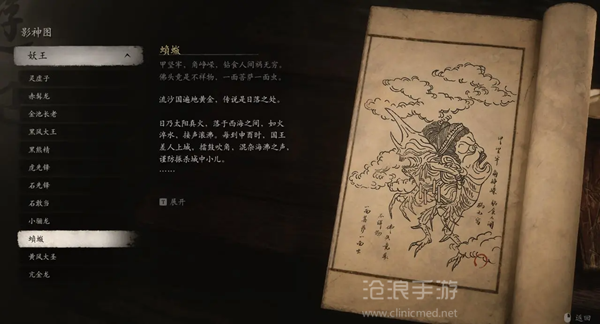 影神图
妖王
灵虚子
赤髯龙
金池长老
黑风大王
黑熊精
虎先锋
石先锋
石敢当
小骊龙
蝜蝂
黄风大圣
亢金龙
蝜蝂
甲坚牢,角峥嵘,钻食人间祸无穷。
佛头竟是不祥物,一面菩萨一面虫。
流沙国遍地黄金,传说是日落之处。
日乃太阳真火,落于西海之间,如火
淬水,接声滚沸,每到申酉时,国王
差人上城,擂鼓吹角,混杂海沸之声,
谨防振杀城中小儿。
……
T 展开
甲坚牢
角峥嵘
钻食人间
祸无穷
佛头竟是
不祥物
一面菩萨一面虫
沧浪手游
www.clinicmed.net
返回